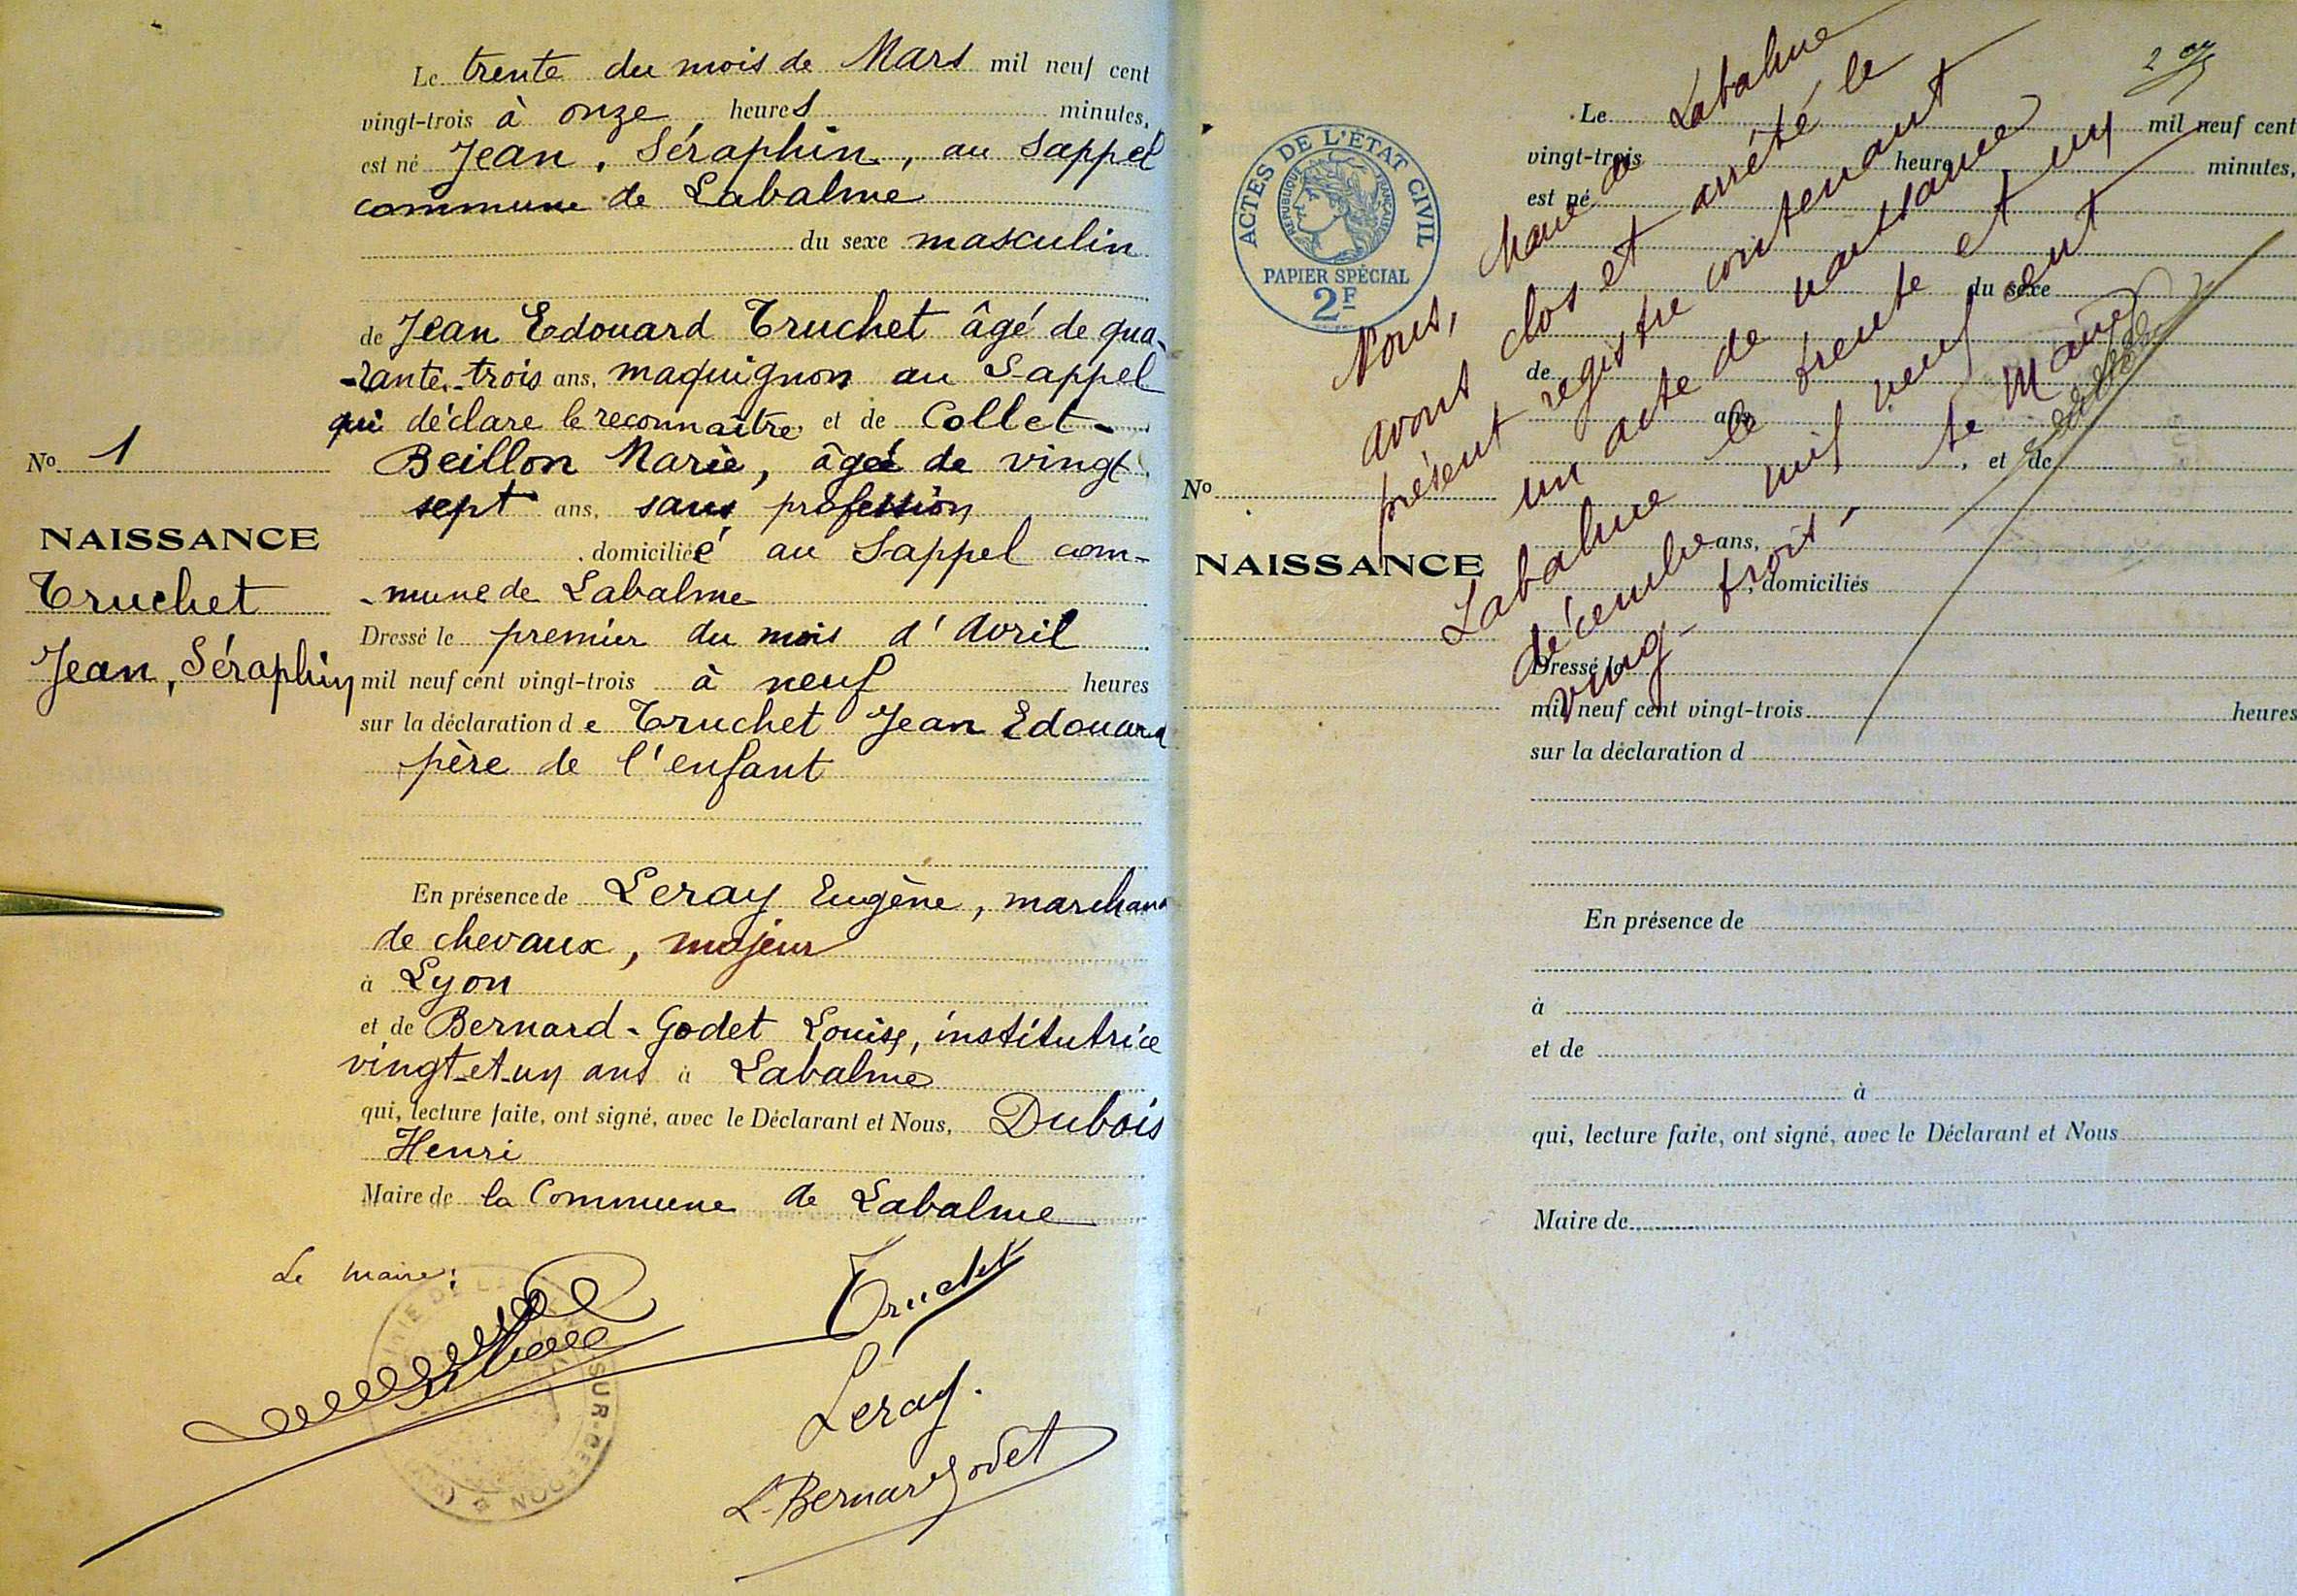 Le trente du mois de Mars mil neuf cent
vingt-trois à onze heures minutes,
est né Jean, Séraphin, au Sappel
commune de Labalme
du sexe masculin
de Jean Edouard Truchet âgé de qua-
-rante-trois ans, maquignon au Sappel
qui déclare le reconnaître, et de Collet-
Beillon Marie, âgée de vingt
sept ans, sans profession
domicilié au Sappel com-
-mune de Labalme
Dressé le premier du mois d'Avril
mil neuf cent vingt-trois à neuf heures
sur la déclaration de Truchet Jean Edouard
père de l'enfant
En présence de Leray Eugène, marchand
de chevaux, majeur
à Lyon
et de Bernard-Godet Louise, institutrice
vingt-et-un ans à Labalme
qui, lecture faite, ont signé, avec le Déclarant et Nous, Dubois
Henri
Maire de la Commune de Labalme
Le Maire:
Truchet
Leray.
L. Bernard Godet
SUR-CERDON
No 1
NAISSANCE
Truchet
Jean, Séraphin
ACTES DE L'ÉTAT CIVIL
RÉPUBLIQUE FRANÇAISE
PAPIER SPÉCIAL
2F
No
NAISSANCE
Le mil neuf cent
vingt-trois heure minutes,
est né
du sexe
de
ans,
, et de
ans,
, domiciliés
Dressé le
mil neuf cent vingt-trois heures
sur la déclaration d
En présence de
à
et de
à
qui, lecture faite, ont signé, avec le Déclarant et Nous
Maire de
Nous, Maire de Labalme
avons clos et arrêté le
présent registre contenant
un acte de naissance
Labalme le trente et un
décembre mil neuf cent
vingt-trois-
Le Maire